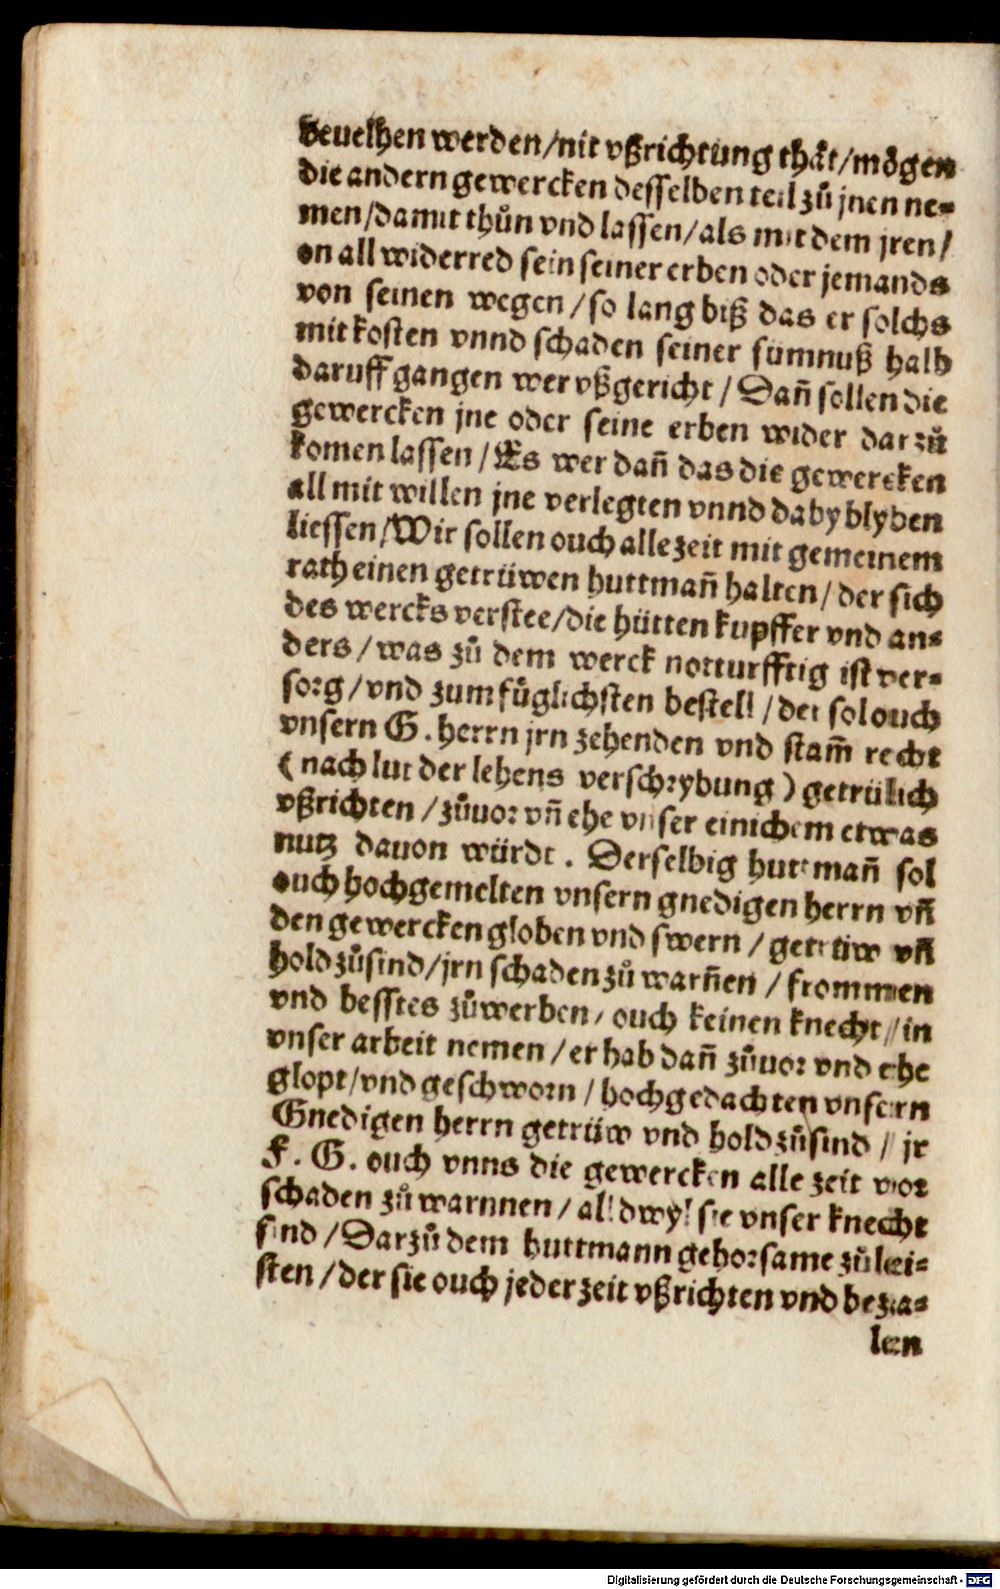 beuelhen werden/nit vßrichtung thåt/mögen
die andern gewercken desselben teil zů jnen ne⸗
men/damit thůn vnd lassen/als mit dem jren/
on all widerred sein seiner erben oder jemands
von seinen wegen/so lang biß das er solchs
mit kosten vnnd schaden seiner sumnuß halb
daruff gangen wer vßgericht/Dañ sollen die
gewercken jne oder seine erben wider dar zů
komen lassen/Es wer dañ das die gewercken
all mit willen jne verlegten vnnd daby blyben
liessen/Wir sollen ouch alle zeit mit gemeinem
rath einen getrüwen huttmañ halten/der sich
des wercks verstee/die hütten kupffer vnd an⸗
ders/was zů dem werck notturfftig ist ver⸗
sorg/vnd zum füglichsten bestell/der sol ouch
vnsern G. herrn jrn zehenden vnd stam̃ recht
(nach lut der lehens verschrybung) getrülich
vßrichten/zůuor vñ ehe vnser einichem etwas
nutz dauon würdt. Derselbig huttmañ sol
ouch hochgemelten vnsern gnedigen herrn vñ
den gewercken globen vnd swern/getrüw vñ
hold zůsind/jrn schaden zů warñen/frommen
vnd besstes zůwerben/ouch keinen knecht/in
vnser arbeit nemen/er hab dañ zůuor vnd ehe
glopt/vnd geschworn/hochgedachten vnsern
Gnedigen herrn getrüw vnd hold zůsind/jr
F. G. ouch vnns die gewercken alle zeit vor
schaden zů warnnen/all dwyl sie vnser knecht
sind/Darzů dem huttmann gehorsame zů lei⸗
sten/der sie ouch jeder zeit vßrichten vnd beza⸗
len
Digitalisierung gefördert durch die Deutsche Forschungsgemeinschaft - DFG